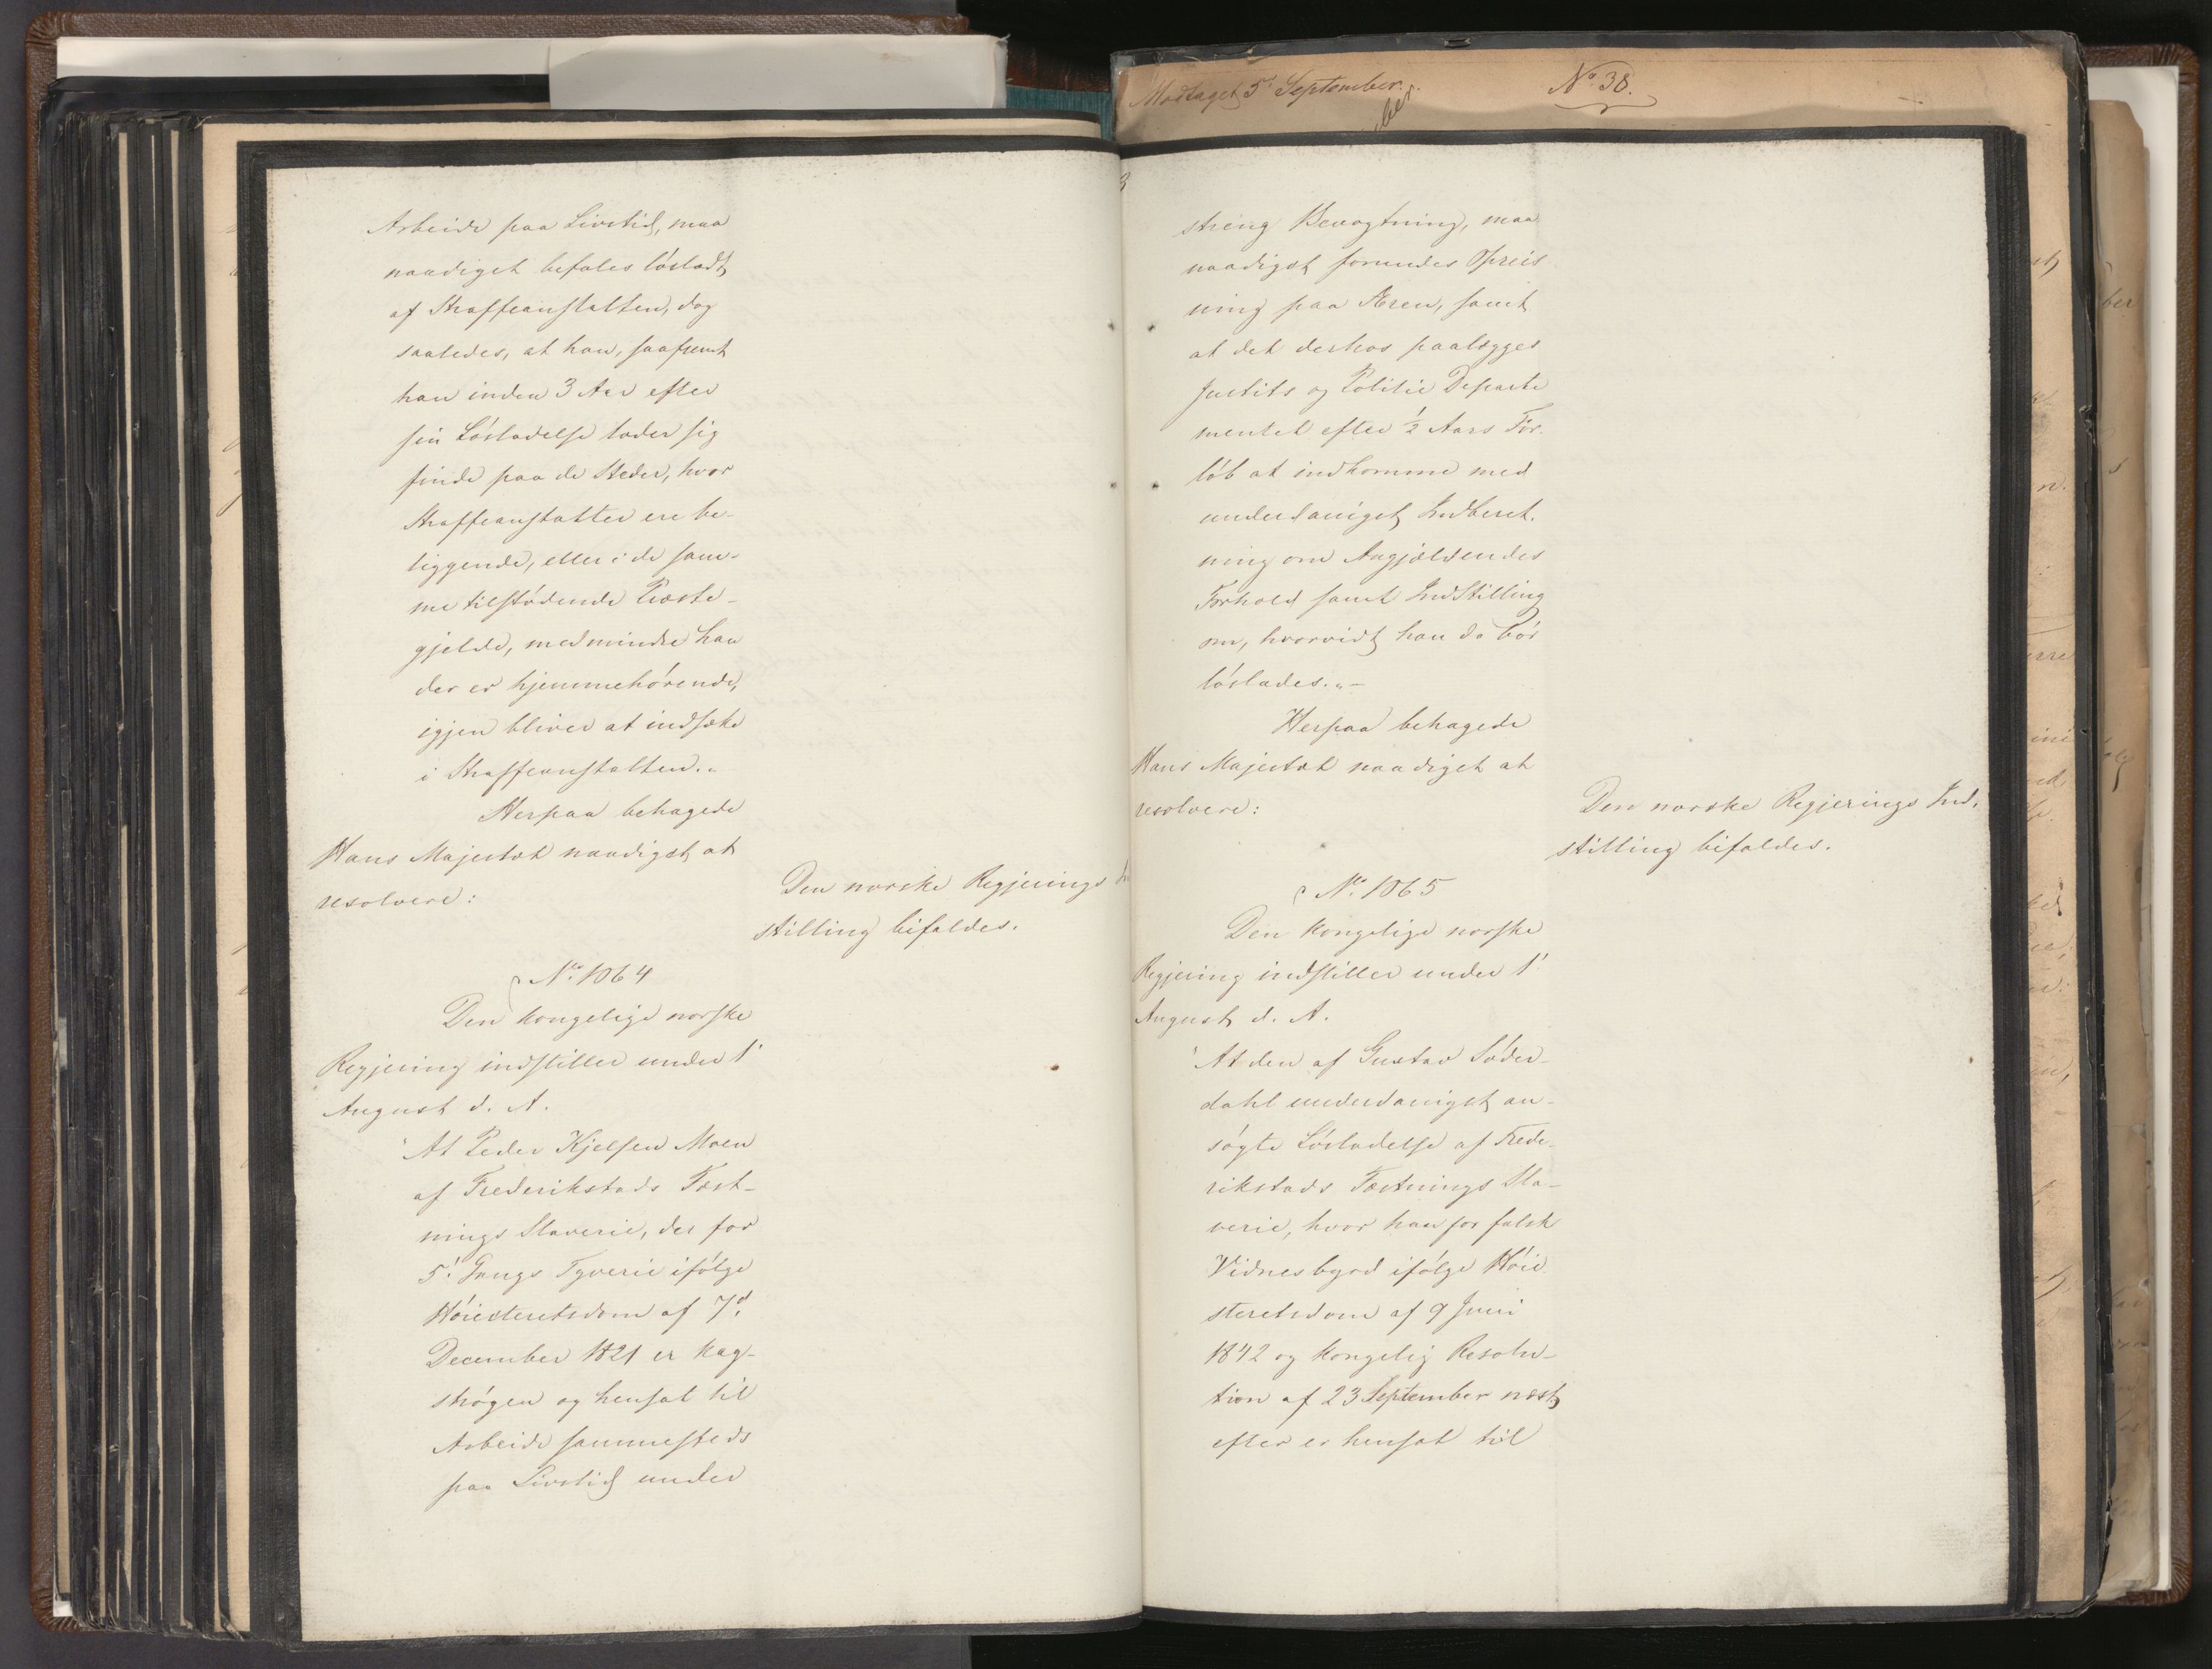 Arbeide paa Livstid, maa
naadigst befales løsladt
af Straffeanstalten, dog
saaledes, at han, saafremt
han inden 3 Aar efter
sin Løsladelse lader sig
finde paa de Steder, hvor
Straffeanstalter ere be-
liggende, eller i de sam-
me tilstødende Præste-
gjelde, medmindre han
der er hjemmehørende,
igjen bliver at indsætte
i Straffeanstalten."
Herpaa behagede
Hans Majestæt naadigst at
resolvere:
Den norske Regjerings In
stilling bifaldes.
No. 1064
Den kongelige norske
Regjering indstiller under 1'
August d. A.
"At Peder Kjelsen Moen
af Frederikstads Fæst-
nings Slaverie, der for
5' Gangs Tyverie ifølge
Høiesteretsdom af 7d
December 1821 er kag-
strøgen og hensat til
Arbeide sammesteds
paa Livstid under
Modtaget 5' September.
No 38.
ber
streng Bevogtning, maa
naadigst forundes Opreis
ning paa Æren, samt
at det derhos paalægges
Justits og Politie Departe
mentet efter ½ Aars For-
løb at indkomme med
underdanigst Indberet-
ning om Angjældendes
Forhold samt Indstilling
om, hvorvidt han da bør
løslades."-
Herpaa behagede
Hans Majestæt naadigst at
resolvere:
Den norske Regjerings Ind-
stilling bifaldes.
No. 1065
Den kongelige norske
Regjering indstiller under 1'
August d. A.
"At den af Gustav Söder-
dahl underdanigst an-
søgte Løsladelse af Frede-
rikstads Fæstnings Sla-
verie, hvor han for falsk
Vidnesbyrd ifølge Høie
steretsdom af 9 Juni
1842 og kongelig Resolu-
tion af 23 September næst
efter er hensat til